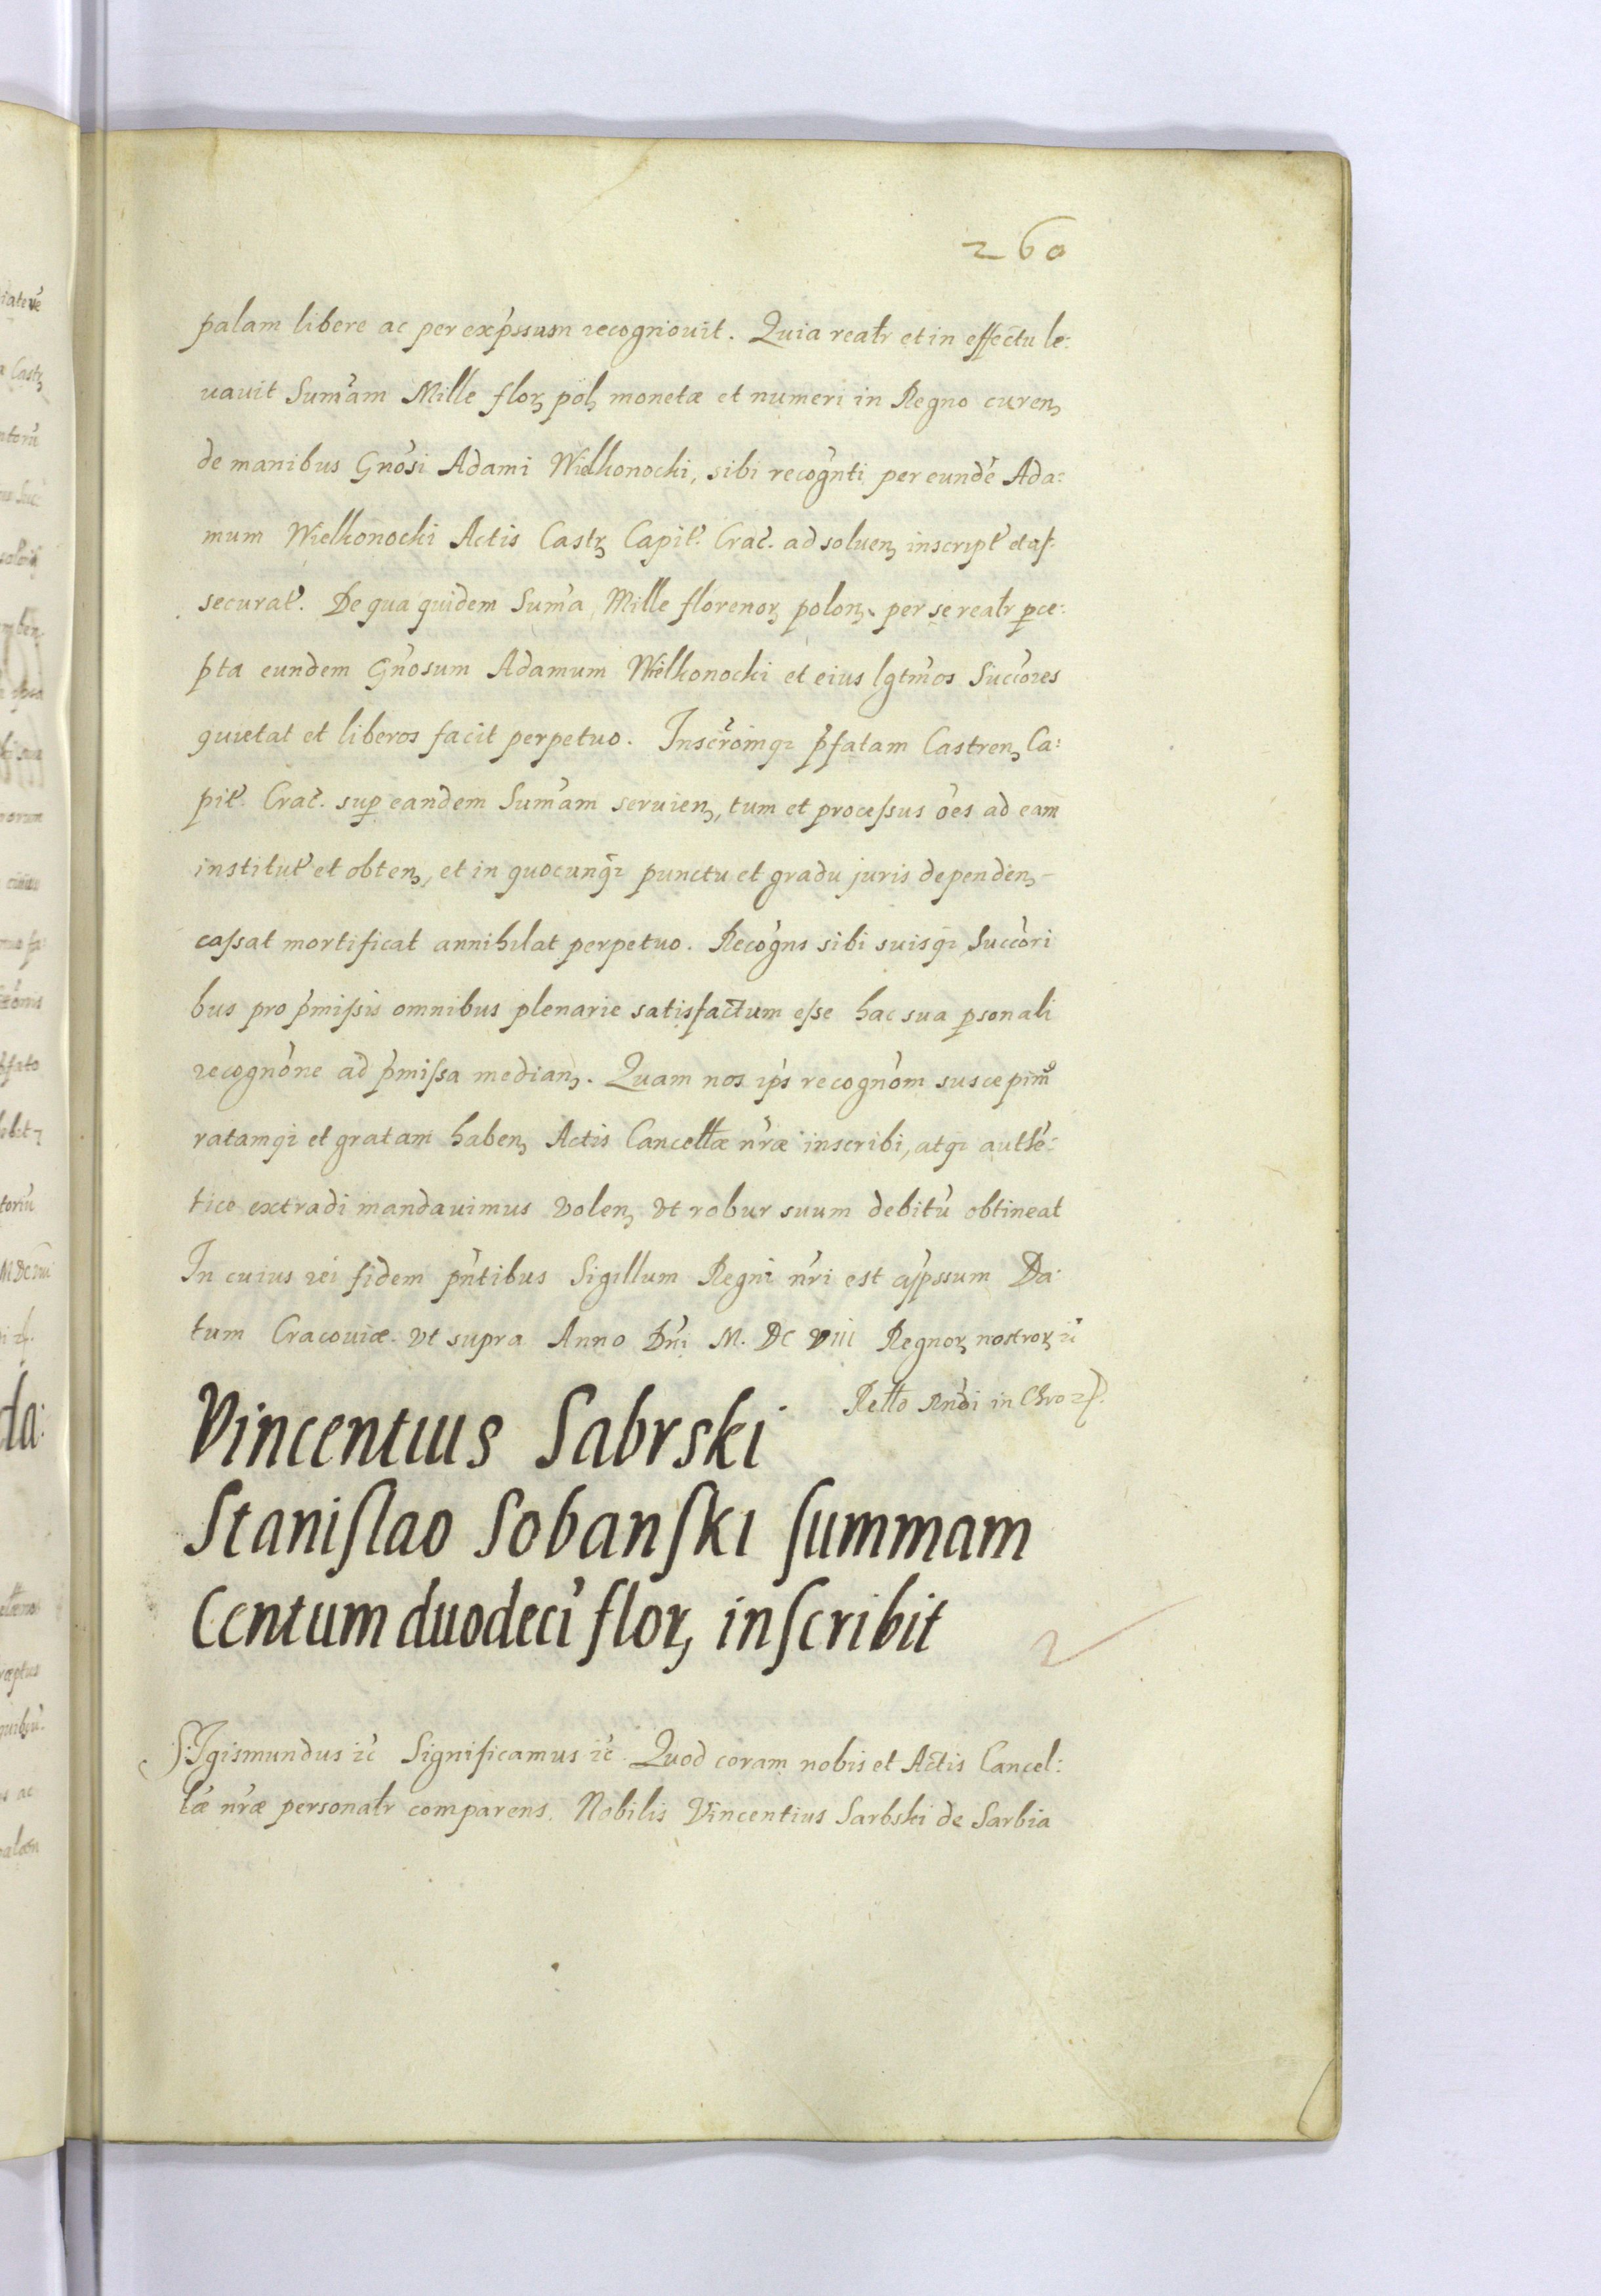 260
palam libere ac per exp̃ssum recognovit. Quia realr et in effectu le:
vavit Sum̃am Mille flor, pol, monetæ et numeri in Regno curen,
de manibus Gnõsi Adami Wielkonocki, sibi recog̃nti per eundẽ Ada:
mum Wielkonocki Actis Castr, Capit̃. Crac̃. ad soluen, inscript̃ et aſ:
securat̃. De qua quidem Sum̃a Mille florenor, polon, per se realr p̱ce:
pta eundem Gñosum Adamum Wielkonocki et eius lgtm̃os Succõres
quietat et liberos facit perpetuo. Inscr̃omqз p̃fatam Castren, Ca:
pit̃. Crac̃. sup̱ eandem Sum̃am seruien, tum et proceſsus ões ad eam
institut̃ et obten, et in quocunqз punctu et gradu juris dependen,-
caſsat mortificat annihilat perpetuo. Recog̃ns sibi suisqз Succõri
bus pro p̃miſsis omnibus plenarie satisfactum eſse hac sua p̱sonali
recognõne ad p̃miſsa median,. Quam nos ip̃s recognõm suscepim9
ratamqз et gratam haben, Actis Cancellæ nr̃æ inscribi, atqз authẽ:
tice extradi mandauimus volen, vt robur suum debitũ obtineat
In cuius rei fidem pñtibus Sigillum Regni nr̃i est app̃ssum Da:
tum Cracouiæ. vt supra Anno Dñi M. DC VIII Regnor, nostror, zc̃
Rello Rndi in Chro zf.
Vincentius Sabrski
Staniſlao Sobanſki ſummam
Centum duodecĩ flor, inſcribit
SIgismundus zc̃ Significamus zc̃. Quod coram nobis et Actis Cancel:
læ nr̃æ personalr comparens. Nobilis Vincentius Sarbski de Sarbia